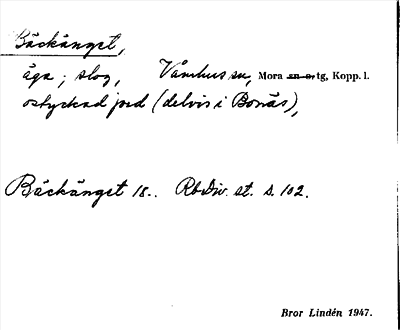 Bäckänget,
äga; slog, Våmhus sn, Mora sn o. tg, Kopp. l.
ostyckad jord (delvis i Bonäs),
Bäckänget 18-. RbDiv. st. s. 102.
Bror Lindén 1947.